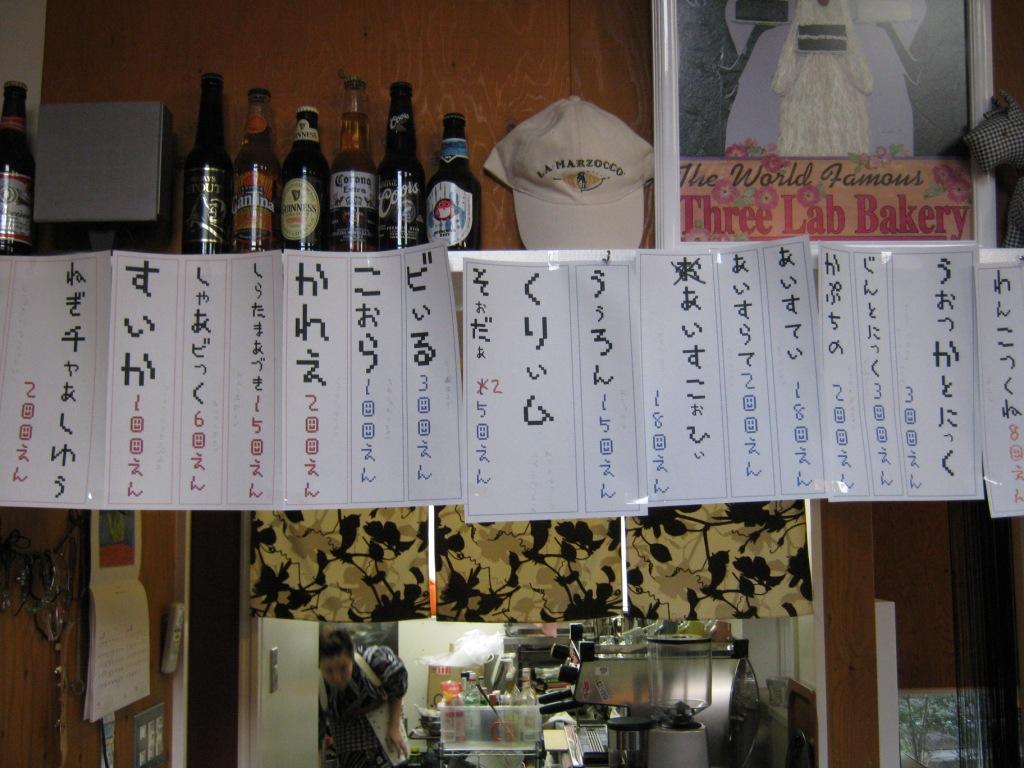 STOUT
GUINNESS
GUINNESS
Corona
Extra
Coors
Coors
LA MARZOCCO
The World Famous
Three Lab Bakery
わんこつくね 8回えん
うぉっかとにっく 3回回えん
じんとにっく 3回回えん
かぷちの 2回回えん
あいすてい 18回えん
あいすらて 2回回えん
あいすこぉひぃ 18回えん
うぅろん 150えん
くりぃむ
そぉだぁ 450えん
びぃる 3回回えん
こおら 1回回えん
かれえ 2回回えん
しらたまあづき 150えん
しゃあびっく 6回えん
すいか 1回回えん
ねぎチャあしゅう 2回回えん